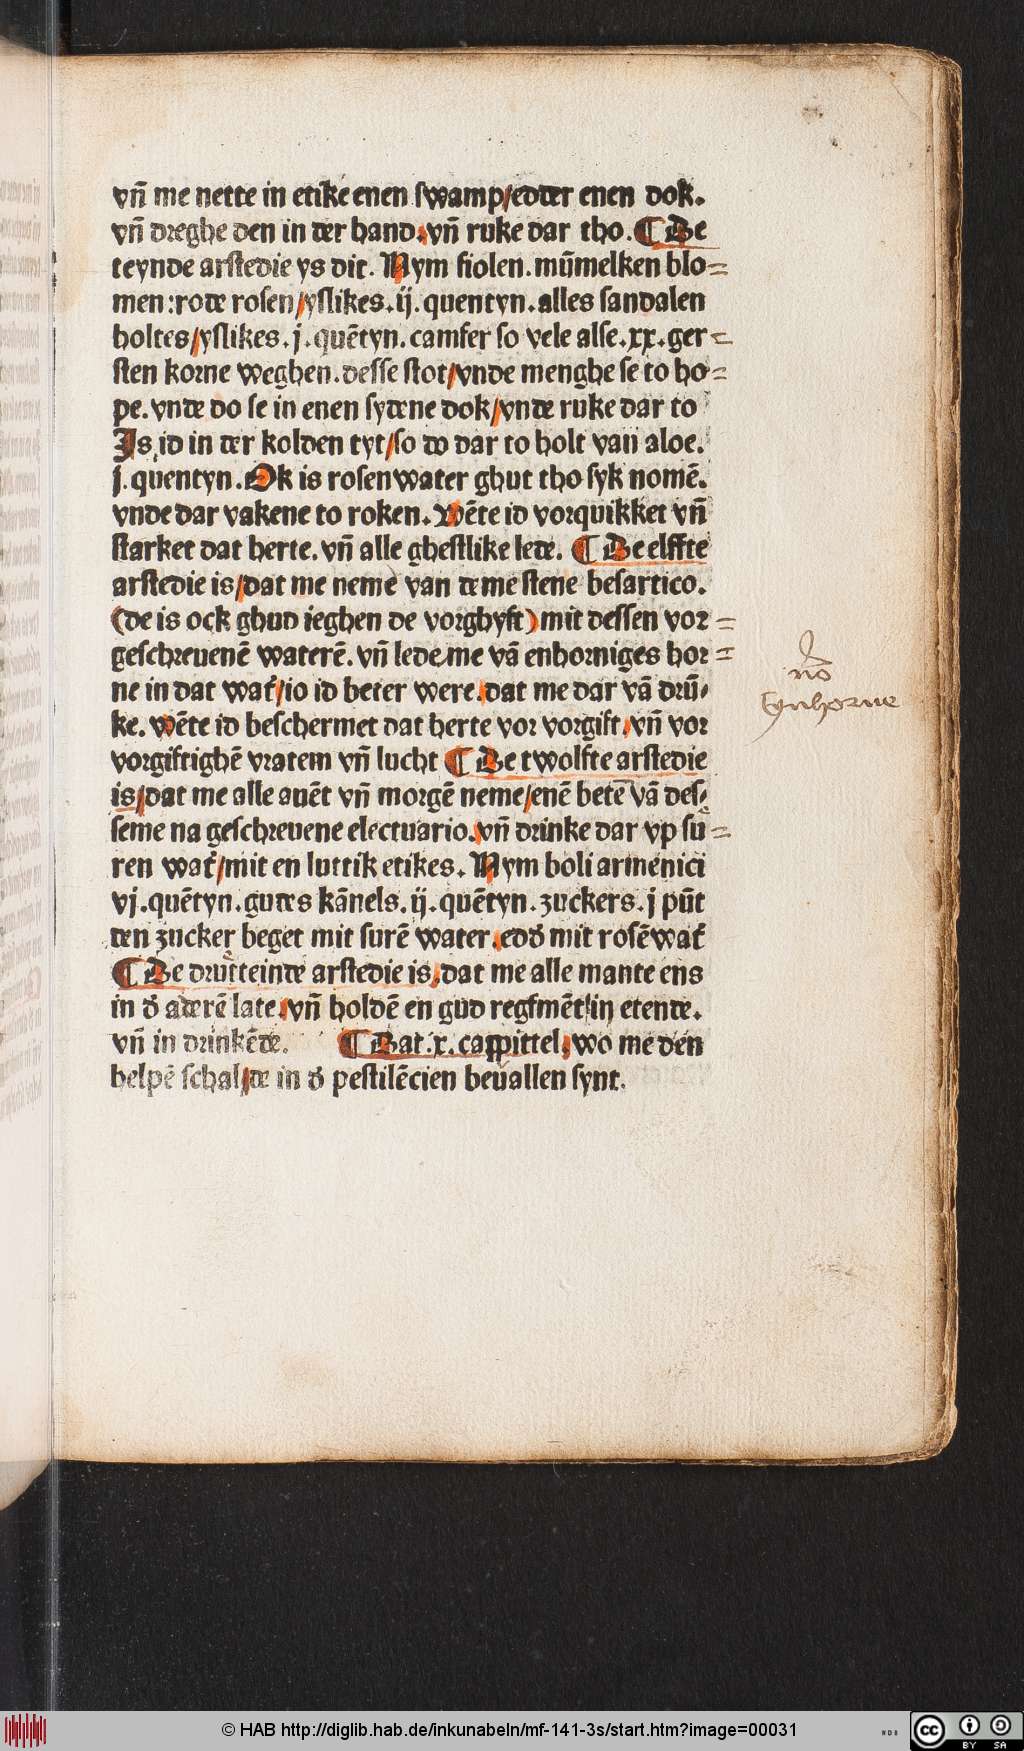 vñ me nette in etike enen swamp/edder enen dok.
vñ dreghe den in der hand.vñ ruke dar tho. ¶ De
teynde arstedie ys dit. Nym fiolen.mūmelken blo=
men:rode rosen/yslikes.ij.quentyn.alles sandalen
holtes/yslikes.j.quētyn.camfer so vele alse.xx.ger=
sten korne weghen.desse stot/vnde menghe se to ho=
pe.vnde do se in enen sydene dok/vnde ruke dar to
Is id in der kolden tyt/so do dar to holt van aloe.
j.quentyn.Ok is rosenwater ghut tho syk nomē.
vnde dar vakene to roken.Wēte id vorquikket vñ
starket dat herte.vñ alle ghestlike lede. ¶ De elffte
arstedie is/dat me neme van deme stene besartico.
(de is ock ghud ieghen de vorghyft) mit dessen vor=
geschreuenē waterē.vñ lede me vā enhorniges hor=
ne in dat wat̄/io id beter were.dat me dar vā drū=
ke.Wēte id beschermet dat herte vor vorgift/vñ vor
vorgiftighē vratem vñ lucht ¶ De twolfte arstedie
is/dat me alle auēt vñ morgē neme/enē betē vā des=
seme na geschreuene electuario.vñ drinke dar vp su=
ren wat̄/mit en luttik etikes.Nym boli armenici
vj.quētyn.gudes kānels.ij.quētyn.zuckers.j pūt
den zucker beget mit surē water.edd̄ mit rosēwat̄
¶ De drutteinde arstedie is/dat me alle mante ens
in d̄ aderē late.vñ holdē en gud regimēt/in etende.
vñ in drinkēde. ¶ Dat.x.cappittel/wo me den
helpē schal/de in d̄ pestilēcien beuallen synt.
Eynhorne
© HAB http://diglib.hab.de/inkunabeln/mf-141-3s/start.htm?image=00031
cc BY SA